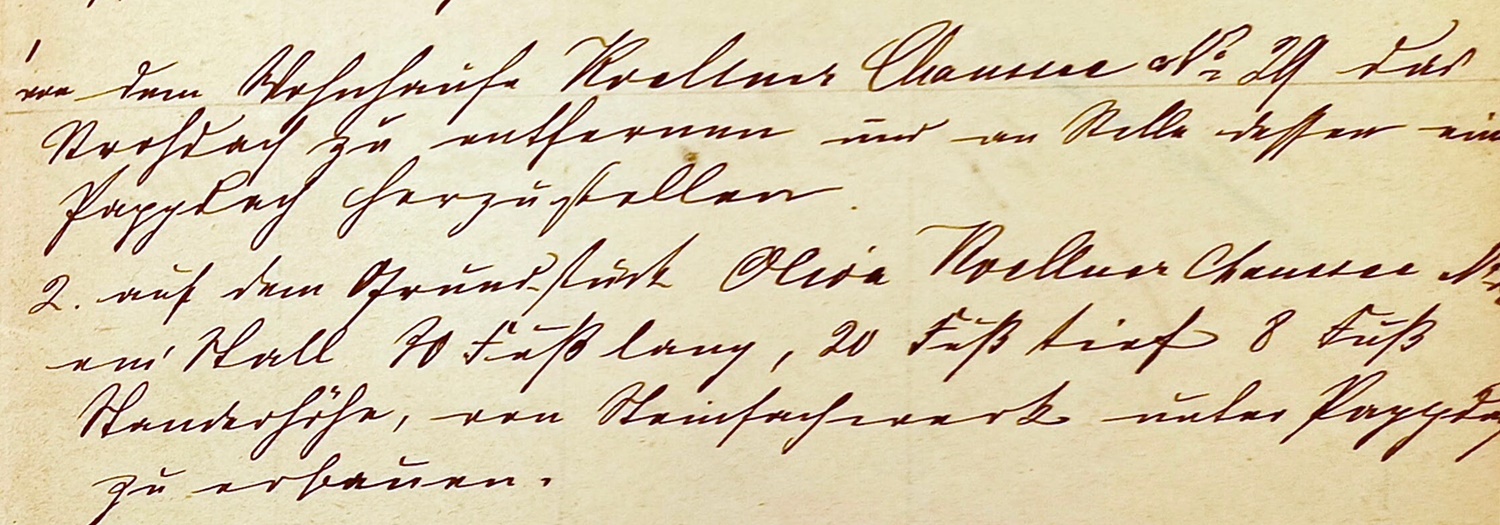 1
von dem Wohnhause Koellner Chaussee No 29 das
Strohdach zu entfernen und an Stelle dessen ein
Pappdach herzustellen.
2. auf dem Grundstück Koellner Chaussee No
ein Stall 70 Fuß lang, 20 Fuß tief 8 Fuß
Ständerhöhe, von Steinfachwerk unter Pappda
zu erbauen.